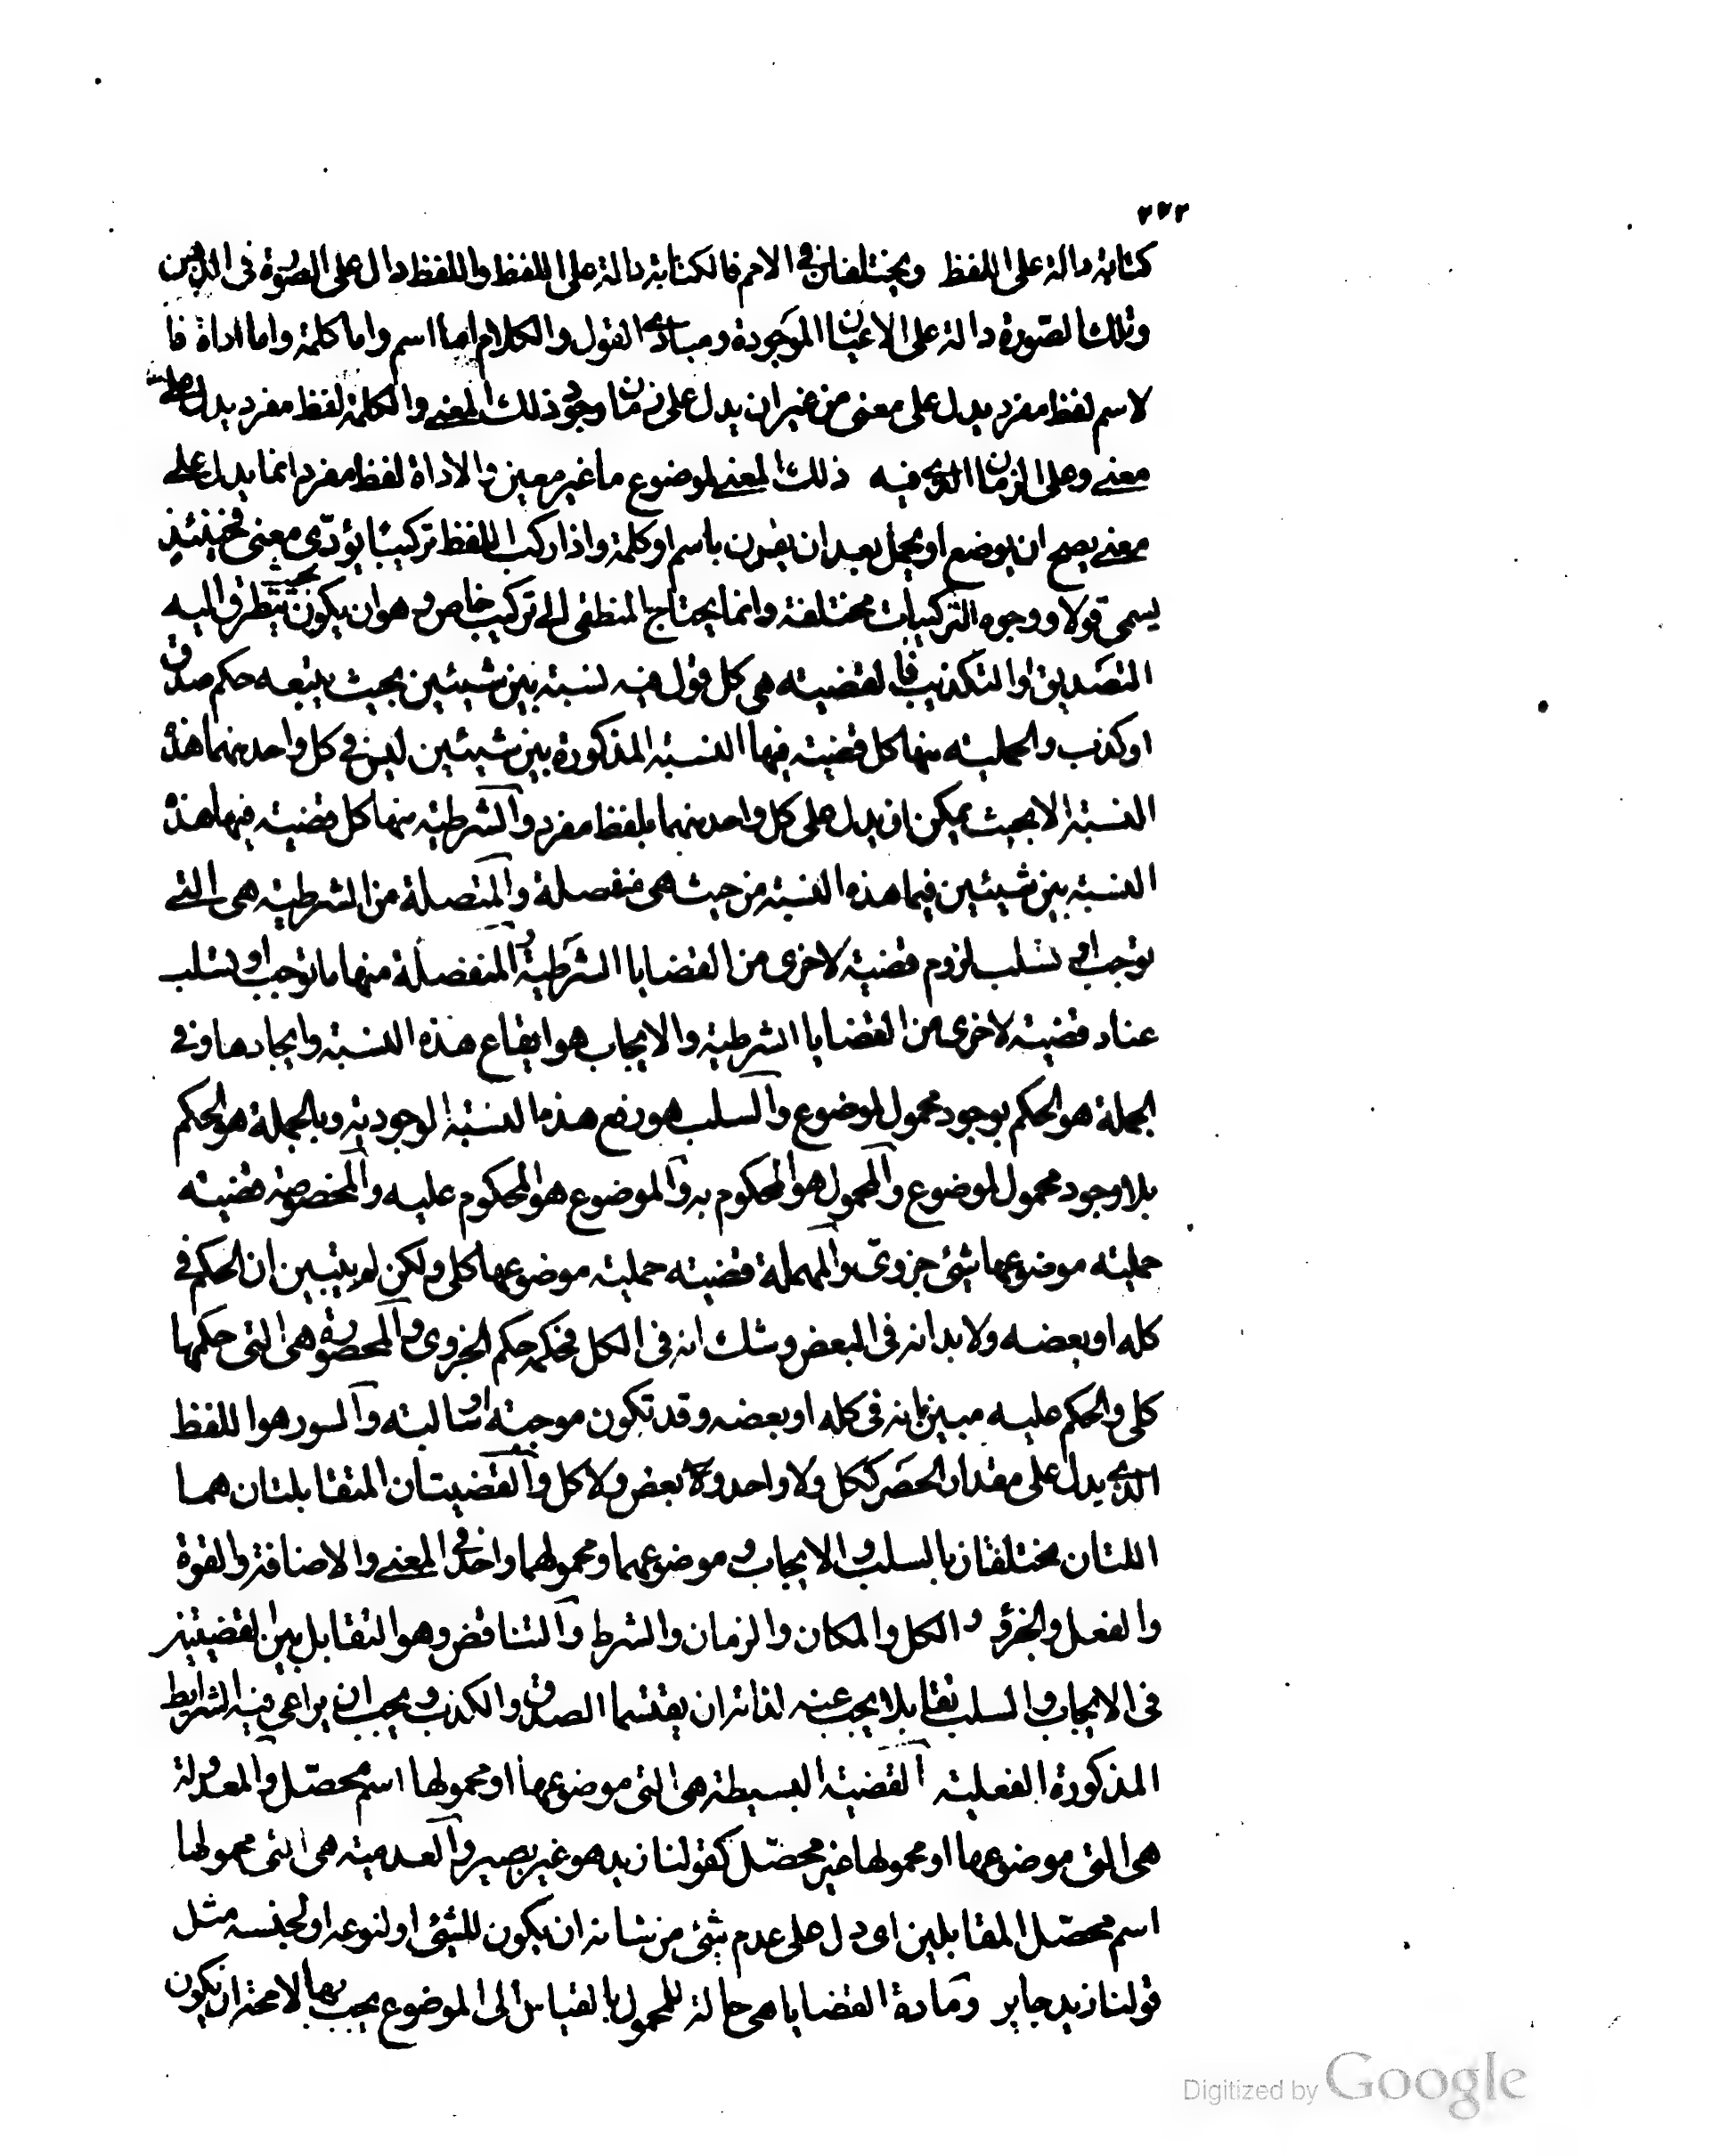 ٢٧٢
كتابة دالة على اللفظ ويختلفان في الامم فالكتابة دالة على اللفظ واللفظ دال على الصورة فى الذهن
وتلك الصورة دالة على الاعيان الموجودة ومبادى القول والكلام اما اسم واما كلمة واما اداة فا
لاسم لفظ مفرد يدل على معنى من غير ان يدل على زمان وجود ذلك المعنى والكلمة لفظ مفرد يدل على
معنى وعلى الزمان الذى فيه ذلك المعنى لموضوع ما غير معين والاداة لفظ مفرد انما يدل على
معنى يصح ان يوضع او يحمل بعد ان يقرن باسم او كلمة واذا ركب اللفظ تركيبا يؤدّى معنى فحينئذ
يسمى قولا ووجوه التركيبات مختلفة وانما يحتاج المنطقى الى تركيب خاص وهو ان يكون بحيث يتطرق اليه
التصديق والتكذيب فالقضية هى كل قول فيه نسبة بين شيئين بحيث يتبعه حكم صدق
او كذب والحملية منها كل قضية فيها النسبة المذكورة بين شيئين ليس فى كل واحد منهما هذه
النسبة الا بحيث يمكن ان يدل على كل واحد منهما بلفظ مفرد والشرطية منها كل قضية فيها هذه
النسبة بين شيئين فيهما هذه النسبة من حيث هى منفصلة والمتصلة من الشرطية هى التى
توجب او تسلب لزوم قضية لاخرى من القضايا الشرطية والمنفصلة منها ما توجب او تسلب
عناد قضية لاخرى من القضايا الشرطية والايجاب هو ايقاع هذه النسبة وايجادها وفى
الجملة هو الحكم بوجود محمول لموضوع والسلب هو رفع هذه النسبة الوجودية وبالجملة هو الحكم
بلا وجود محمول لموضوع والمحمول هو المحكوم به والموضوع هو المحكوم عليه والمخصوصة قضية
حملية موضوعها شئ جزوى والمهملة قضية حملية موضوعها كلى ولكن لم يتبين ان الحكم فى
كله او بعضه ولا بد انه فى البعض وشك انه فى الكل فحكمه حكم الجزوى والمحصورة هى التى حكمها
كلى والحكم عليه مبين بانه فى كله او بعضه وقد تكون موجبة او سالبة والسور هو اللفظ
الذى يدل على مقدار الحصر ككل ولا واحد ولا بعض ولا كل والقضيتان المتقابلتان هما
اللتان مختلفتان بالسلب والايجاب وموضوعهما ومحمولهما واحد فى المعنى والاضافة والقوة
والفعل والجزؤ والكل والمكان والزمان والشرط والتناقض وهو التقابل بين القضيتين
فى الايجاب والسلب تقابلا يجب عنه لذاته ان يقتسما الصدق والكذب ويجب ان يراعى فيه الشرايط
المذكورة الفعلية القضية البسيطة هى التى موضوعها او محمولها اسم محصّل والمعدولة
هى التى موضوعها او محمولها غير محصّل كقولنا زيد هو غير بصير والعدمية هى التى محمولها
اسم محصّل المقابلين اى دل على عدم شئ من شانه ان يكون للشئ او لنوعه او لجنسه مثل
قولنا زيد جاير ومادة القضايا هى حالة للمحمول بالقياس الى الموضوع يجب بها لا محة ان يكون
Digitized by Google